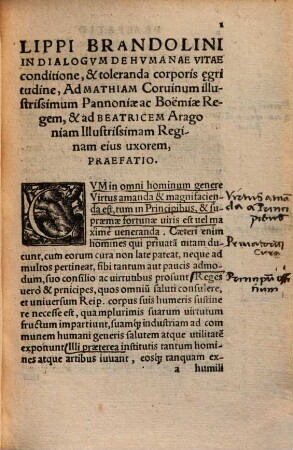 1
LIPPI BRANDOLINI
IN DIALOGVM DE HVMANAE VITAE
conditione, & toleranda corporis egri
tudine, Ad MATHIAM Coruinum illu-
strissimum Pannoniæ ac Boëmiæ Re-
gem, & ad BEATRICEM Arago
niam Illustrissimam Regi
nam eius uxorem,
PRAEFATIO.
CVM in omni hominum genere
Virtus amanda & magnifacien
da est, tum in Principibus, & su
præmæ fortunæ uiris est uel ma
xime ueneranda. Cæteri enim
homines qui priuatā uitam du
cunt, cum eorum cura non late pateat, neque ad
multos pertineat, sibi tantum aut paucis admo-
dum, suo consilio ac uirtutibus prosunt. Reges
uerò & prīcipes, quos omniū saluti consulere,
et uniuersum Reip. corpus suis humeris sustine
re necesse est, qua mplurimis suarum uirtutum
fructum impartiunt, suamq̃ industriam ad com
munem humani generis salutem atque utilitatē
expoñunt. Illi præterea institutis tantum homi-
nes atque artibus iuuant, eosq̃ tanquam ex
a humili
Virtus amā
da a Princi
pibus